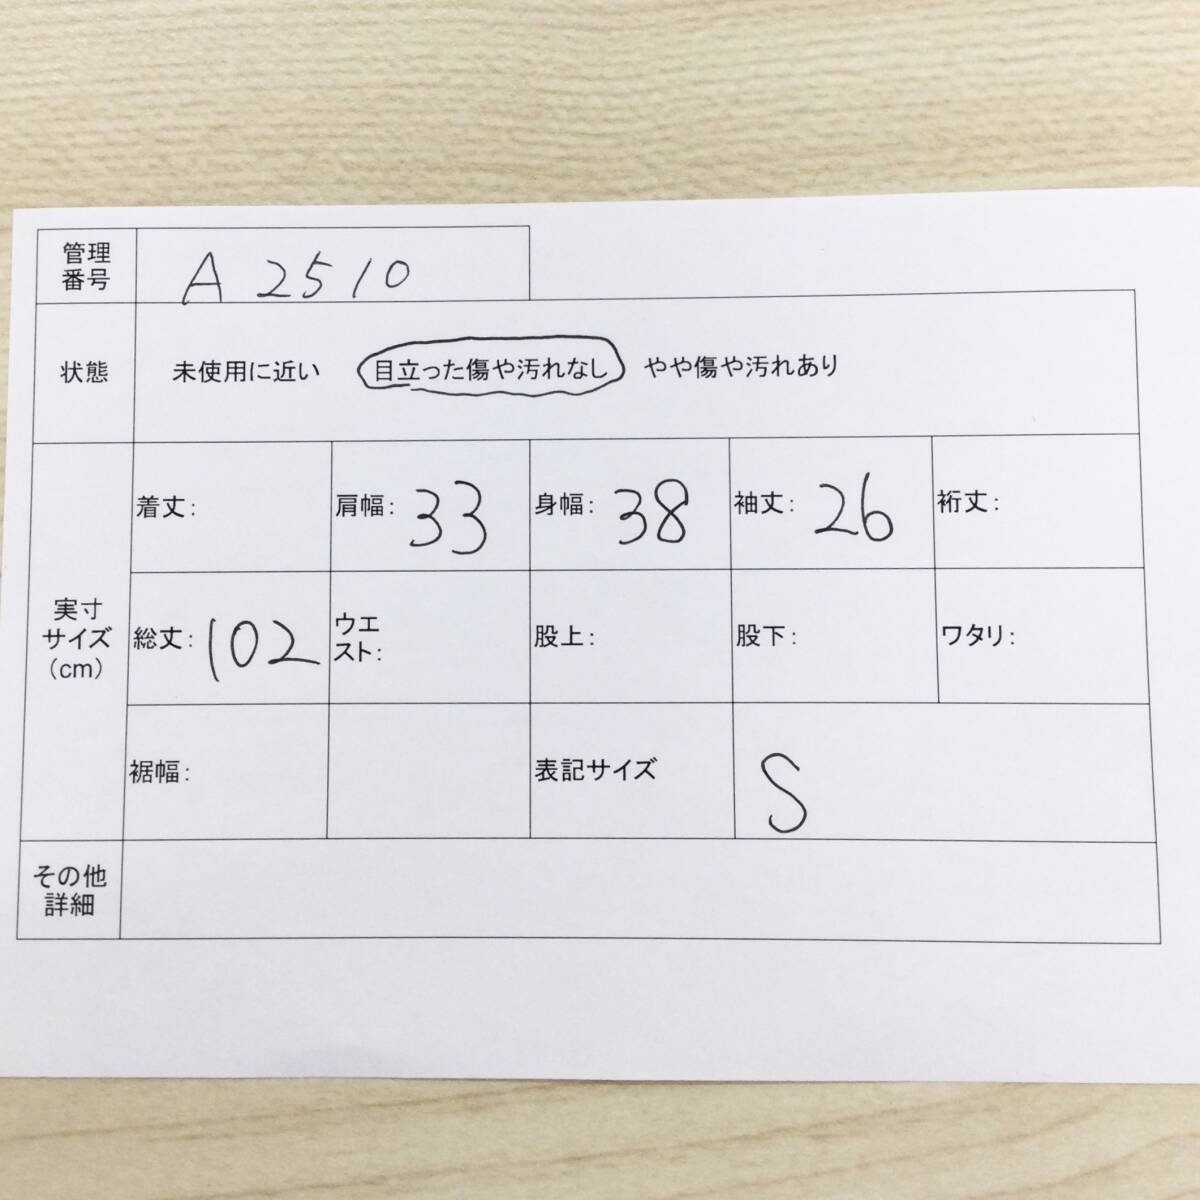 管理
番号
A2510
状態
未使用に近い 目立った傷や汚れなし やや傷や汚れあり
着丈:
肩幅: 33
身幅: 38
袖丈: 26
裄丈:
実寸
サイズ
(cm)
総丈: 102
ウエ
スト:
股上:
股下:
ワタリ:
裾幅:
表記サイズ
S
その他
詳細